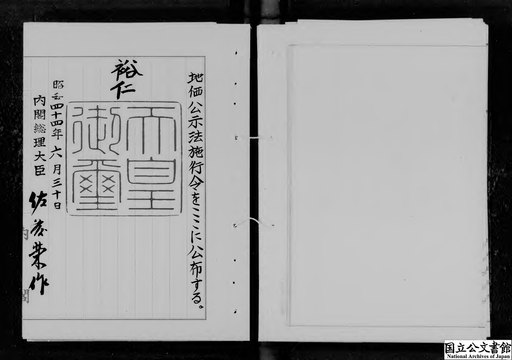 地価公示法施行令をここに公布する。
裕仁
天皇御璽
昭和四十四年六月三十日
内閣総理大臣 佐藤栄作
内閣
国立公文書館
National Archives of Japan